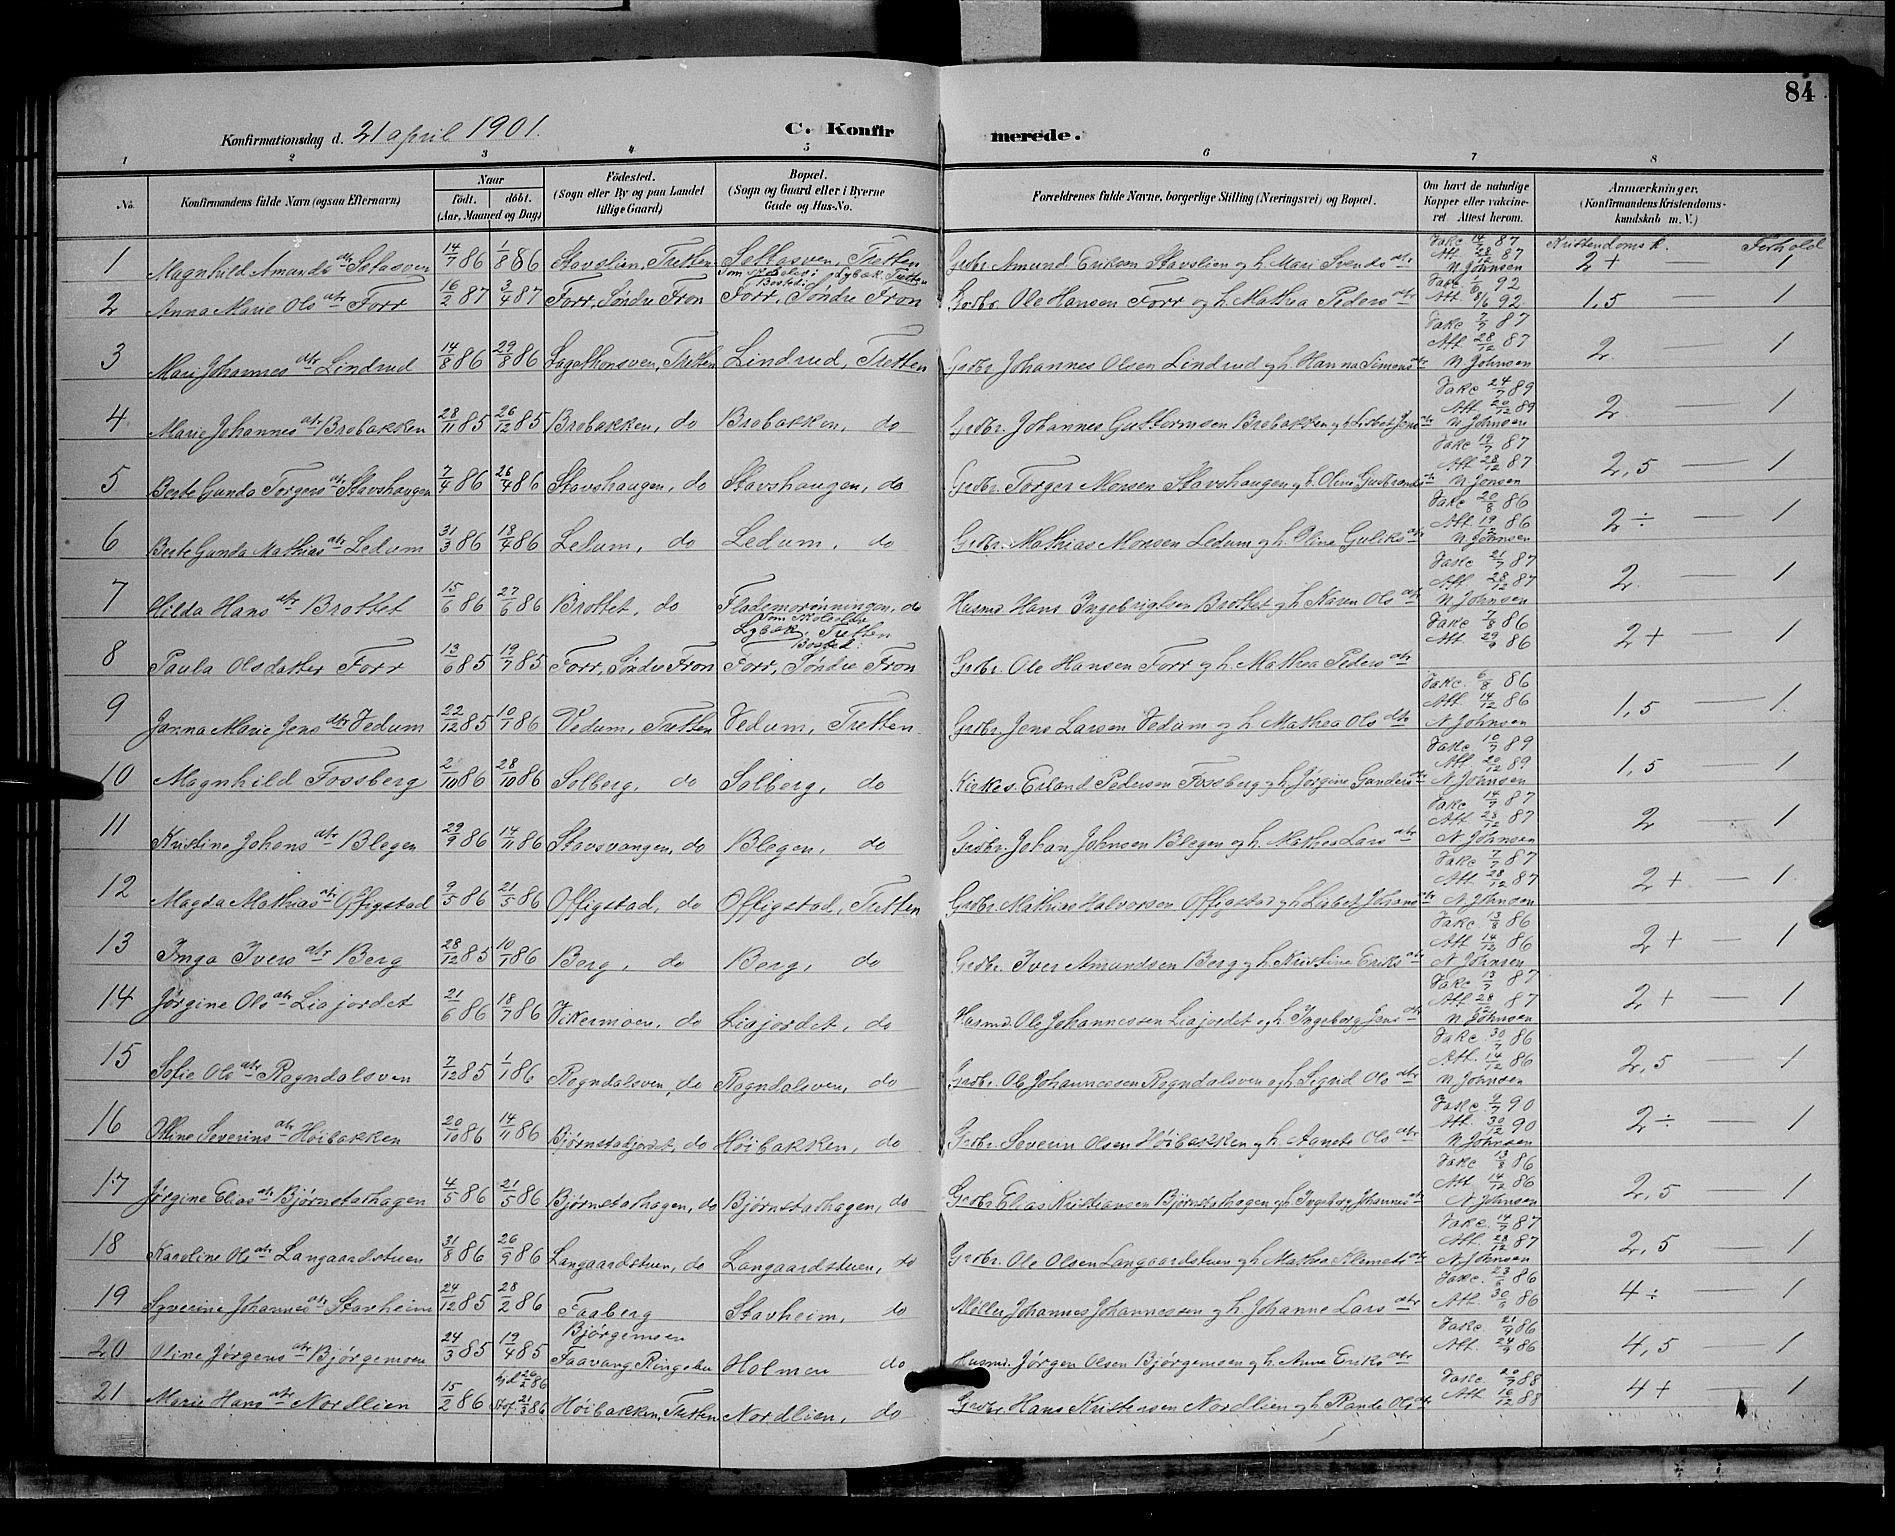 84
Konfirmationsdag d. 21 april 1901. C. Konfirmerede.
1 2 3 4 5 6 7 8
No. Konfirmandens fulde Navn (ogsaa Efternavn) Naar født. døbt. (Aar, Maaned og Dag) Fødested. (Sogn eller By og paa Landet tillige Gaard) Bopæl. (Sogn og Gaard eller i Byerne Gade og Hus-No. Forældrenes fulde Navne, borgerlige Stilling (Næringsvei) og Bopæl. Om havt de naturlige Kopper eller vakcineret. Attest herom. Anmærkninger. (Konfirmandens Kristendomskundskab m. V.)
Kristendomsk. Forhold
1 Magnhild Amunds dtr Sätasven 14/7 86 1/8 86 Stavslien, Tretten Settasven, Tretten Grdbr. Amund Eriksen Stavslien og h. Mari Svends dtr Vakc 14/7 87 Att. 28/12 87 N Johnsen 2+ — 1
2 Anna Marie Ols dtr Forr 16/2 87 3/4 87 Forr, Søndre Fron Som Skoleelev i Lybæk, Tretten Bosted: Forr, Søndre Fron Grdbr. Ole Hansen Forr og h. Mathea Peders dtr Vakc 92 Att. 8/6 92 1,5 — 1
3 Mari Johannes dtr Lindrud 14/8 86 29/8 86 Tretten Lindrud, Tretten Grdbr. Johannes Olsen Lindrud og h. Hanna Simens dtr Vakc 7/7 87 Att 28/12 87 N Johnsen 2 — 1
4 Marie Johannes dtr Brobakken 28/11 85 26/12 85 Brobakken, do Brobakken, do Grdbr. Johannes Guttormsen Brobakken og h. Lisbet Jens dtr Vakc 24/7 89 Att. 20/12 89 N Johnsen 2 — 1
5 Berte Gunda Torgers dtr Stavshaugen 7/4 86 26/4 86 Stavshaugen, do Stavshaugen, do Grdbr. Torger Monsen Stavshaugen og h. Oline Gudbrands dtr Vakc 19/7 87 Att 28/12 87 N Jonsen 2,5 — 1
6 Berte Gunda Mathias dtr Ledum 31/3 86 18/4 86 Ledum, do Ledum, do Grdbr. Mathias Monsen Ledum og h. Oline Guliks dtr Vakc 20/8 86 Att. 19/12 86 N Johnsen 2÷ — 1
7 Hilda Hans dtr Brottet 15/6 86 27/6 86 Brottet, do Flademorønningen, do Husmd Hans Ingebrigtsen Brottet og h. Karen Ols dtr Vakc 21/7 87 Att. 28/12 87 N Johnsen 2 — 1
8 Paula Olsdatter Forr 13/6 85 19/7 85 Forr, Søndre Fron Som Skoleelev Lybæk, Tretten Bosted: Forr, Søndre Fron Grdbr. Ole Hansen Forr og h. Mathea Peders dtr Vakc 7/8 86 Att 29/9 86 2+ — 1
9 Janna Marie Jens dtr Vedum 22/12 85 10/1 86 Vedum, Tretten Vedum, Tretten Grdbr. Jens Larsen Vedum og h. Mathea Ols dtr Vakc. 6/8 86 Att 14/12 86 N Johnsen 1,5 — 1.
10 Magnhild Fossberg 2/10 86 28/10 86 Solberg, do Solberg, do Kirkes. Erland Pedersen Fossberg og h. Jørgine Gunders dtr Vakc 10/7 89 Att. 20/12 89 N Johnsen 1,5 — 1
11 Kristine Johans dtr Blegen 29/9 86 14/11 86 Stavsvangen, do Blegen, do Grdbr. Johan Johnsen Blegen og h. Mathea Lars dtr Vakc 14/7 87 Att 28/12 87 N Johnsen 2 — 1
12 Magda Mathias dtr Offigstad 9/5 86 21/5 86 Offigstad, do Offigstad, Tretten Grdbr. Mathias Halvorsen Offigstad og h. Lisbet Johans dtr Vakc 7/7 87 Att. 28/12 87 N Johnsen 2+ — 1
13 Inga Ivers dtr Berg 28/12 85 10/1 86 Berg, do Berg, do Grdbr. Iver Amundsen Berg og h. Kristine Eriks dtr Vakc 13/8 86 Att 14/12 86 N Johnsen 2+ — 1
14 Jørgine Ols dtr Liajordet 21/6 86 18/7 86 Vikermoen, do Liajordet, do Husmd. Ole Johannessen Liajordet og h. Ingeborg Jens dtr Vakc 13/7 87 Att 28/12 87 N Johnsen 2+ — 1
15 Sofie Ols dtr Rogndalsven 7/12 85 1/1 86 Rogndalsven, do Rogndalsven, do Grdbr. Ole Johannessen Rogndalsven og h. Sigrid Ols dtr Vakc. 30/7 86 Att. 14/12 86 N Johnsen 2,5 — 1
16 Oline Severins dtr Høibakken 20/10 86 14/11 86 Bjørnstadjordet, do Høibakken, do Grdbr. Severin Olsen Høibakken og h. Agnete Ols dtr Vakc. 9/7 90 Att. 30/12 90 N Johnsen 2÷ — 1
17 Jørgine Elias dtr Bjørnstadhagen 4/5 86 21/5 86 Bjørnstadhagen, do Bjørnstadhagen, do Grdbr Elias Kristiansen Bjørnstadhagen og h. Ingeborg Johannes dtr Vakc 13/8 86 Att 14/12 86 N Johnsen 2,5 — 1
18 Karoline Ols dtr Langaardstuen 31/8 86 26/9 86 Langaardstuen, do Langaardstuen, do Grdbr. Ole Olsen Langaardstuen og h. Mathea Klemets dtr Vakc. 14/7 87 Att. 28/12 87 N Johnsen 2,5 — 1
19 Syverine Johannes dtr Stavheim 24/12 85 28/2 86 Faaberg Stavheim, do Møller Johannes Johannessen og h. Johanne Lars dtr Vakc. 23/6 86 Att. 30/6 86 4÷ — 1
20 Oline Jørgens dtr Bjørgemoen 24/3 85 19/4 85 Bjørgemoen Faavang Ringebu Holmen do Husmd. Jørgen Olsen Bjørgemoen og h. Anne Eriks dtr Vakc 21/9 86 Att. 24/9 86 4,5 — 1
21 Marie Hans dtr Nordlien 15/2 86 hjd 20/2 86 Stf 21/3 86 Høibakken, Tretten Nordlien, do Grdbr. Hans Kristensen Nordlien og h. Rande Ols dtr Vakc. 20/7 88 Att 16/12 88 4+ — 1